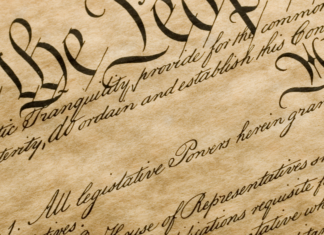 the Peop
tic Tranquility, provide for the common
terity, do ordain and establish this Con
1. All legislative Powers herein gran
House of Representatives s
requisite f